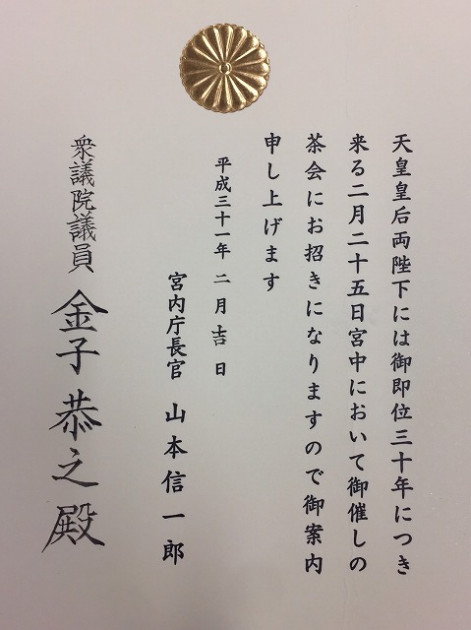 天皇皇后両陛下には御即位三十年につき
来る二月二十五日宮中において御催しの
茶会にお招きになりますので御案内
申し上げます
平成三十一年 二月吉日
宮内庁長官 山本信一郎
衆議院議員 金子恭之殿